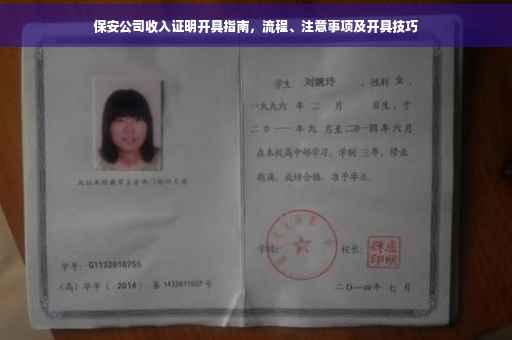 保安公司收入证明开具指南，流程、注意事项及开具技巧
学生 刘婉玲 ，性别 女 ，
一九九六 年 二 月 日生，于
二〇一一 年 九 月至 二〇一四 年 六 月
在本校高中部学习，学制 三 年，修业
期满，成绩合格，准予毕业。
学校： 校长：
学号：G1132010755
（高）毕字（ 2014 ）第 1432011027 号
二〇一四年 七 月